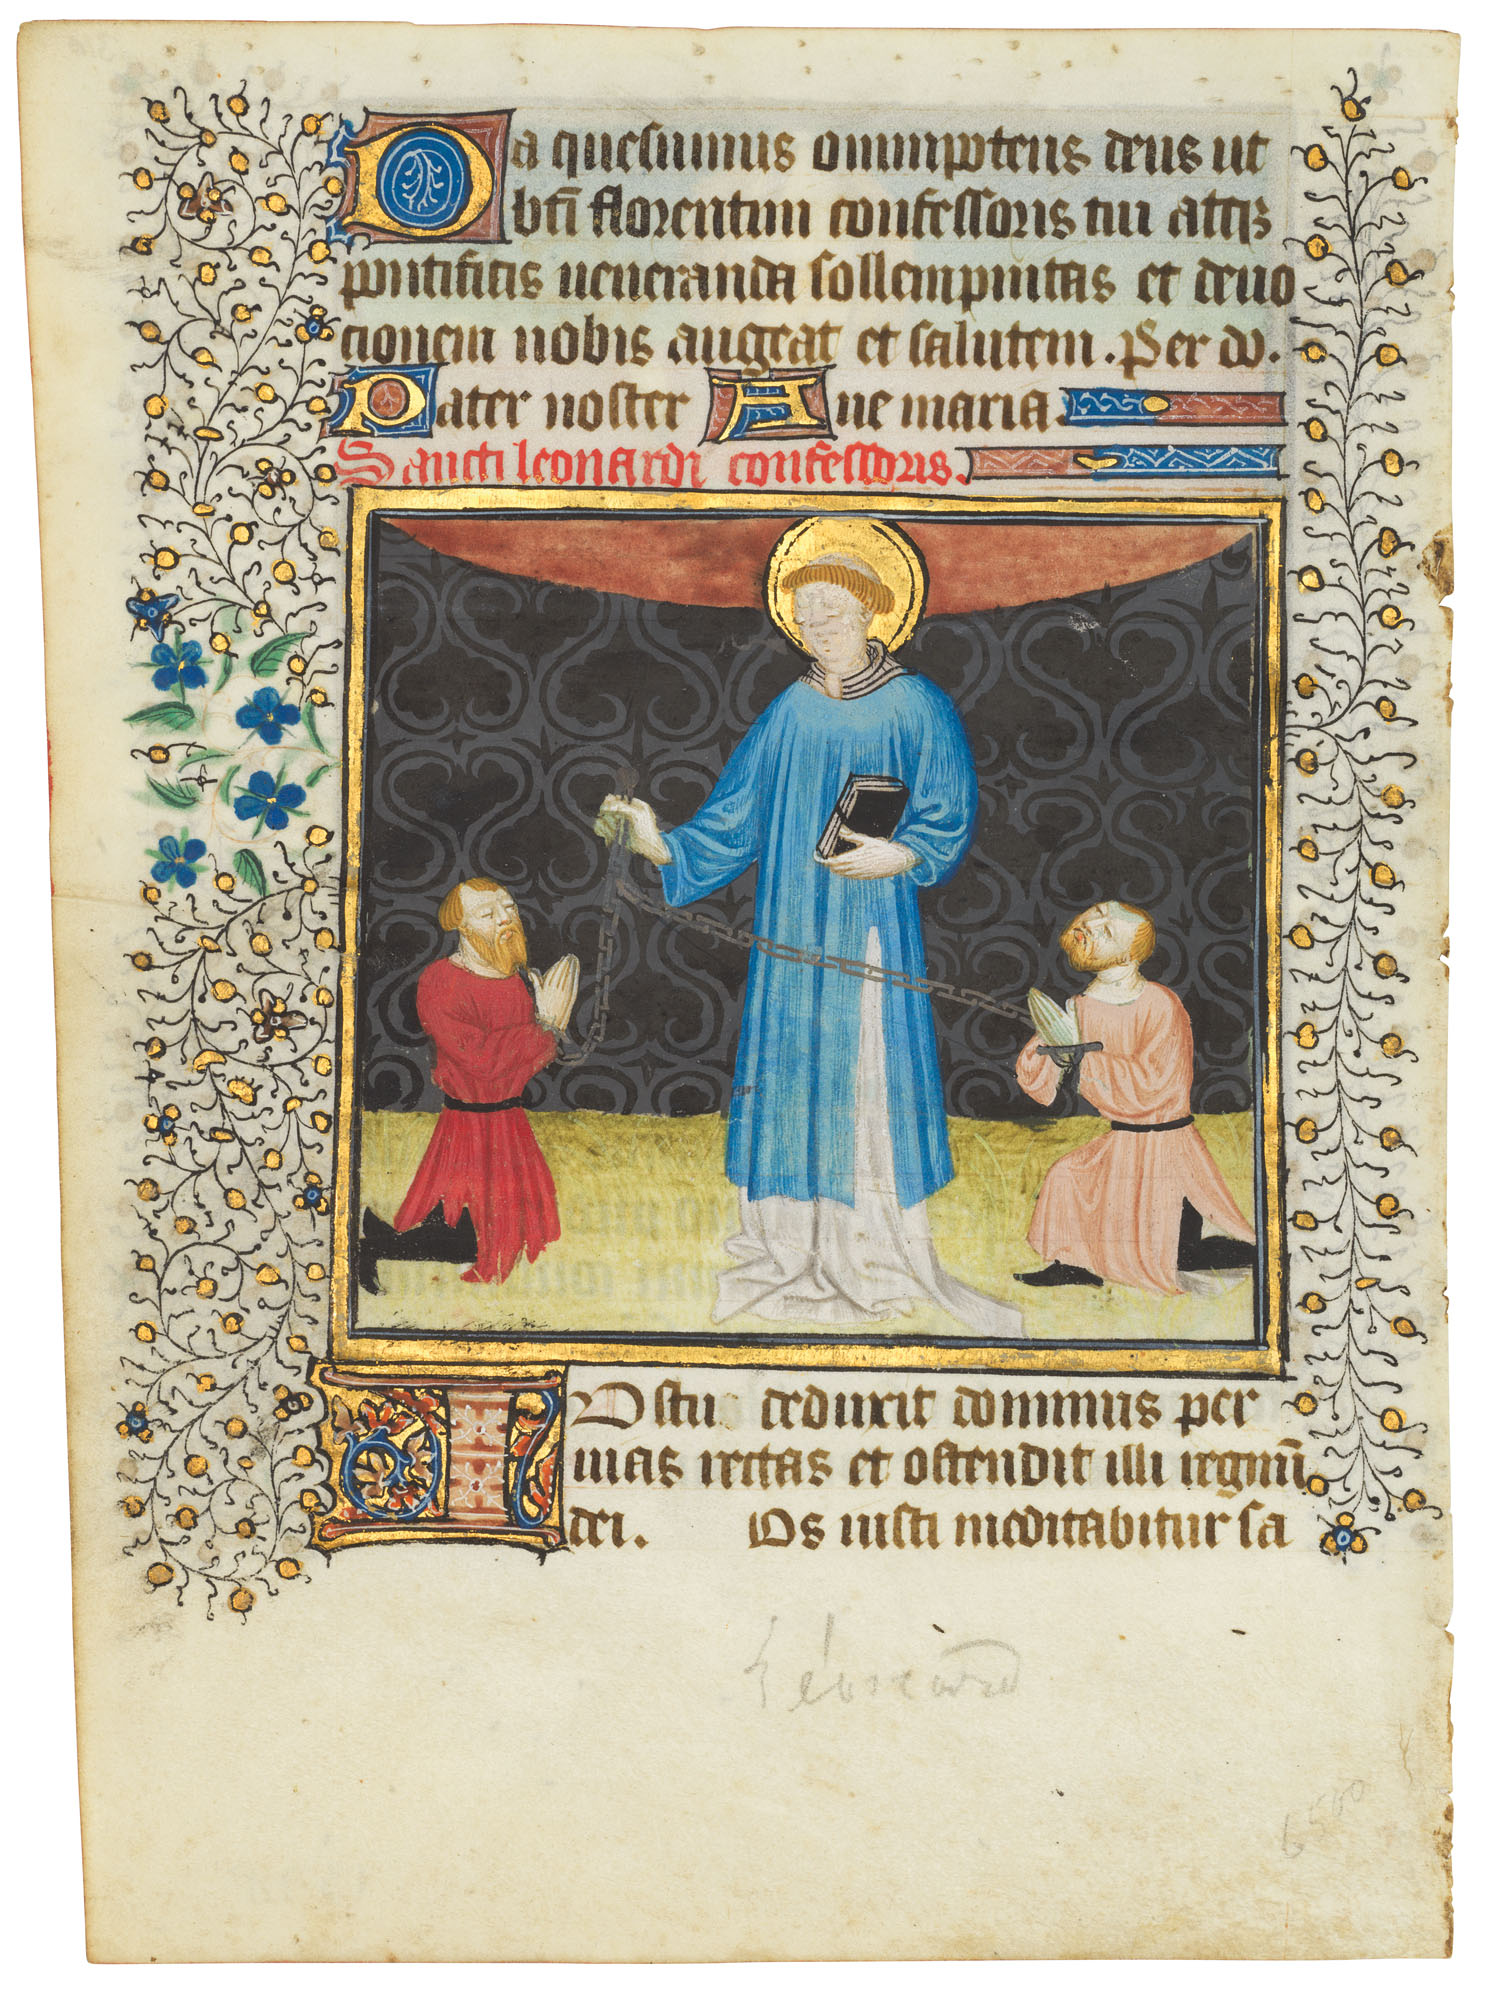 Da quesumus omnipotens deus ut
bti florentini confessoris tui atqz
pontificis ueneranda sollempnitas et deuo
cionem nobis augeat et salutem. Per do.
Pater noster Aue maria
Sancti leonardi confessoris.
Iustu deduxit dominus per
uias rectas et ostendit illi regnu
dei. Os iusti meditabitur sa
Léonard
6500